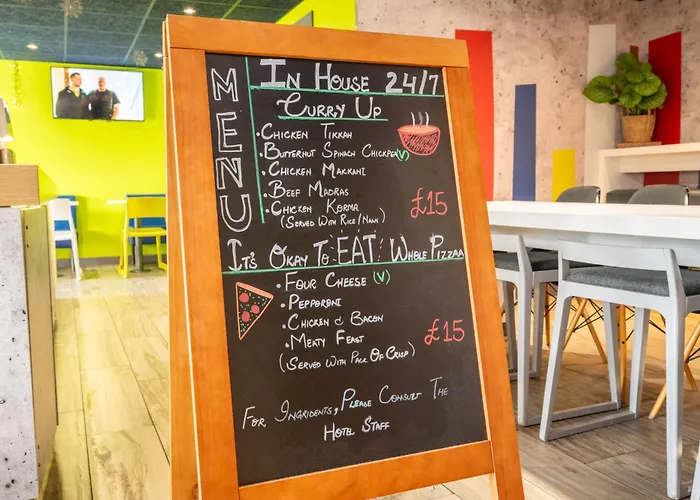 MENU
In House 24/7
Curry Up
• Chicken Tikkah
• Butternut Spinach Chickpea (V)
• Chicken Makkani
• Beef Madras
• Chicken Korma
(Served with Rice/Naan)
£15
It's Okay To EAT Whole Pizzaa
• Four Cheese (V)
• Pepporoni
• Chicken & Bacon
• Meaty Feast
(Served With Pack Of Crisp)
£15
For Ingridents, Please Consult The
Hotel Staff